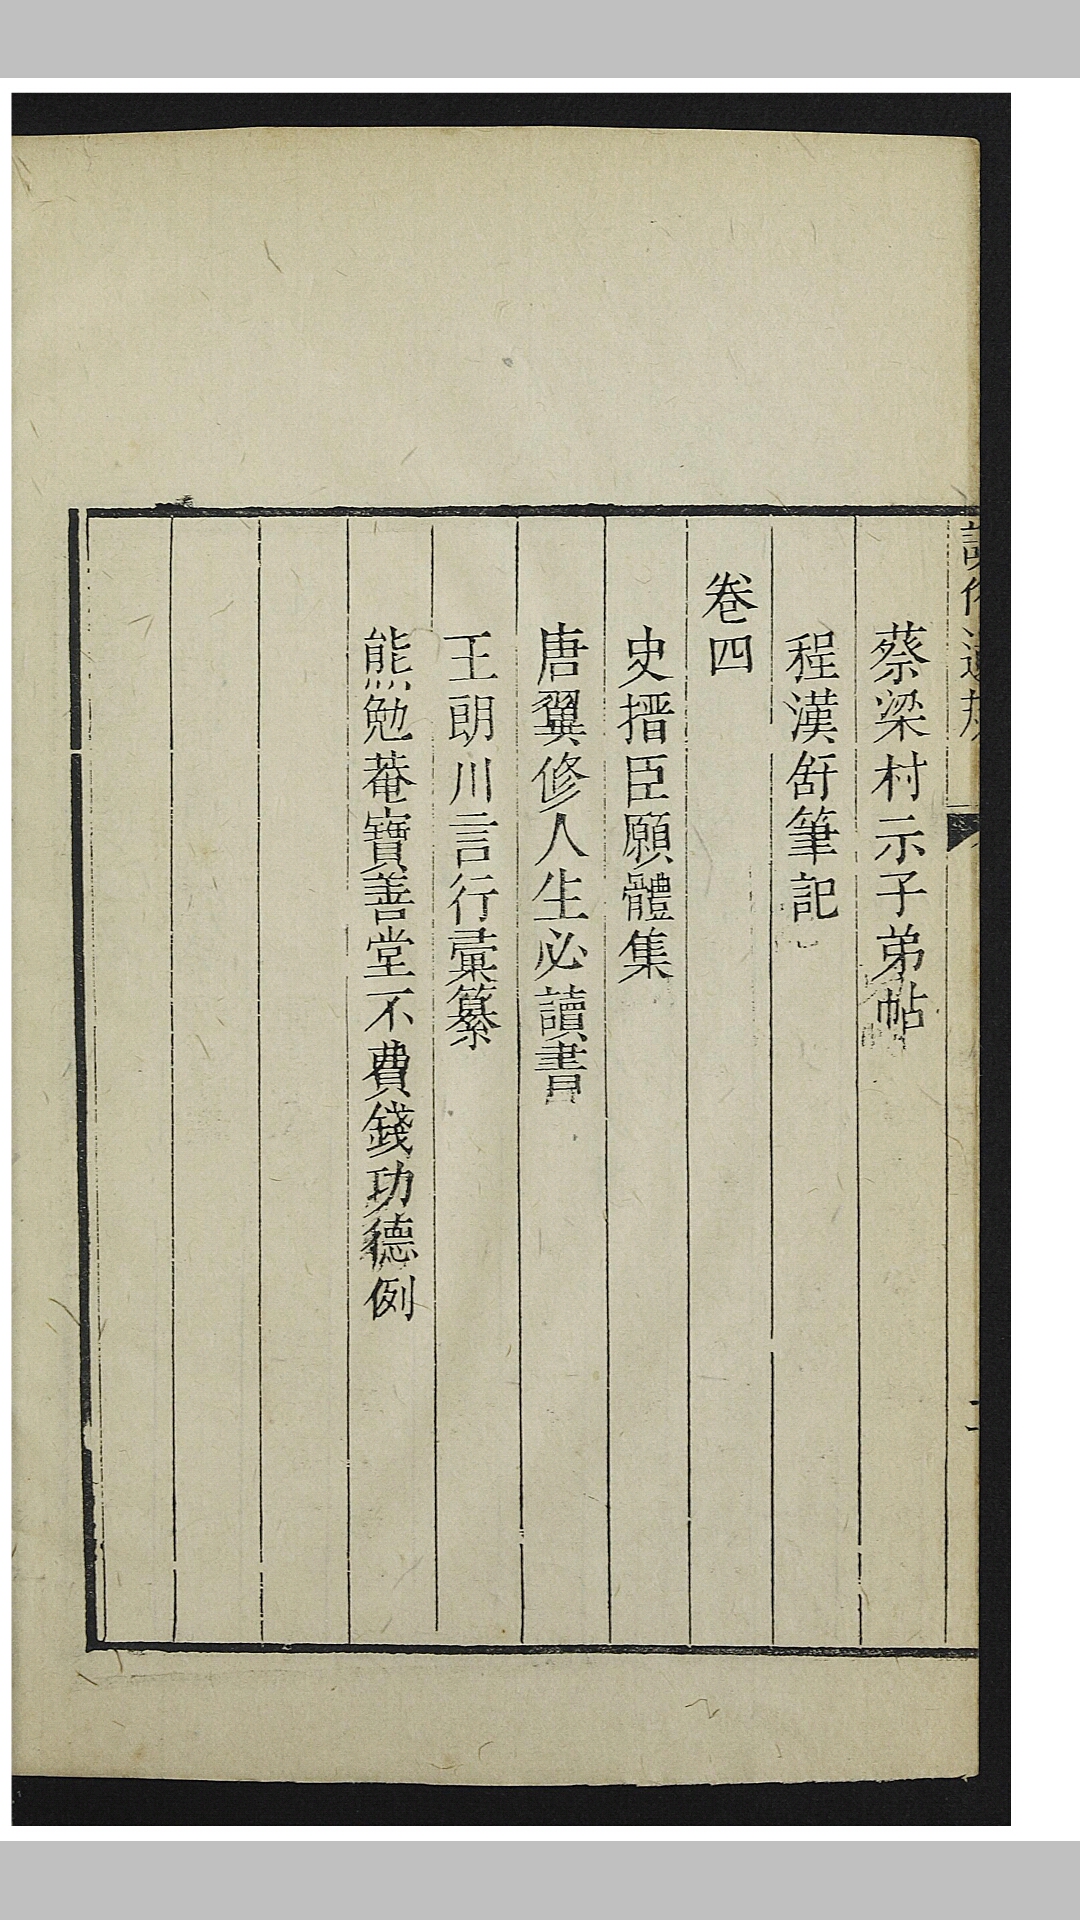 訓俗遺規
蔡梁村示子弟帖
程漢舒筆記
卷四
史搢臣願體集
唐翼修人生必讀書
王朗川言行彚纂
熊勉菴寶善堂不費錢功德例